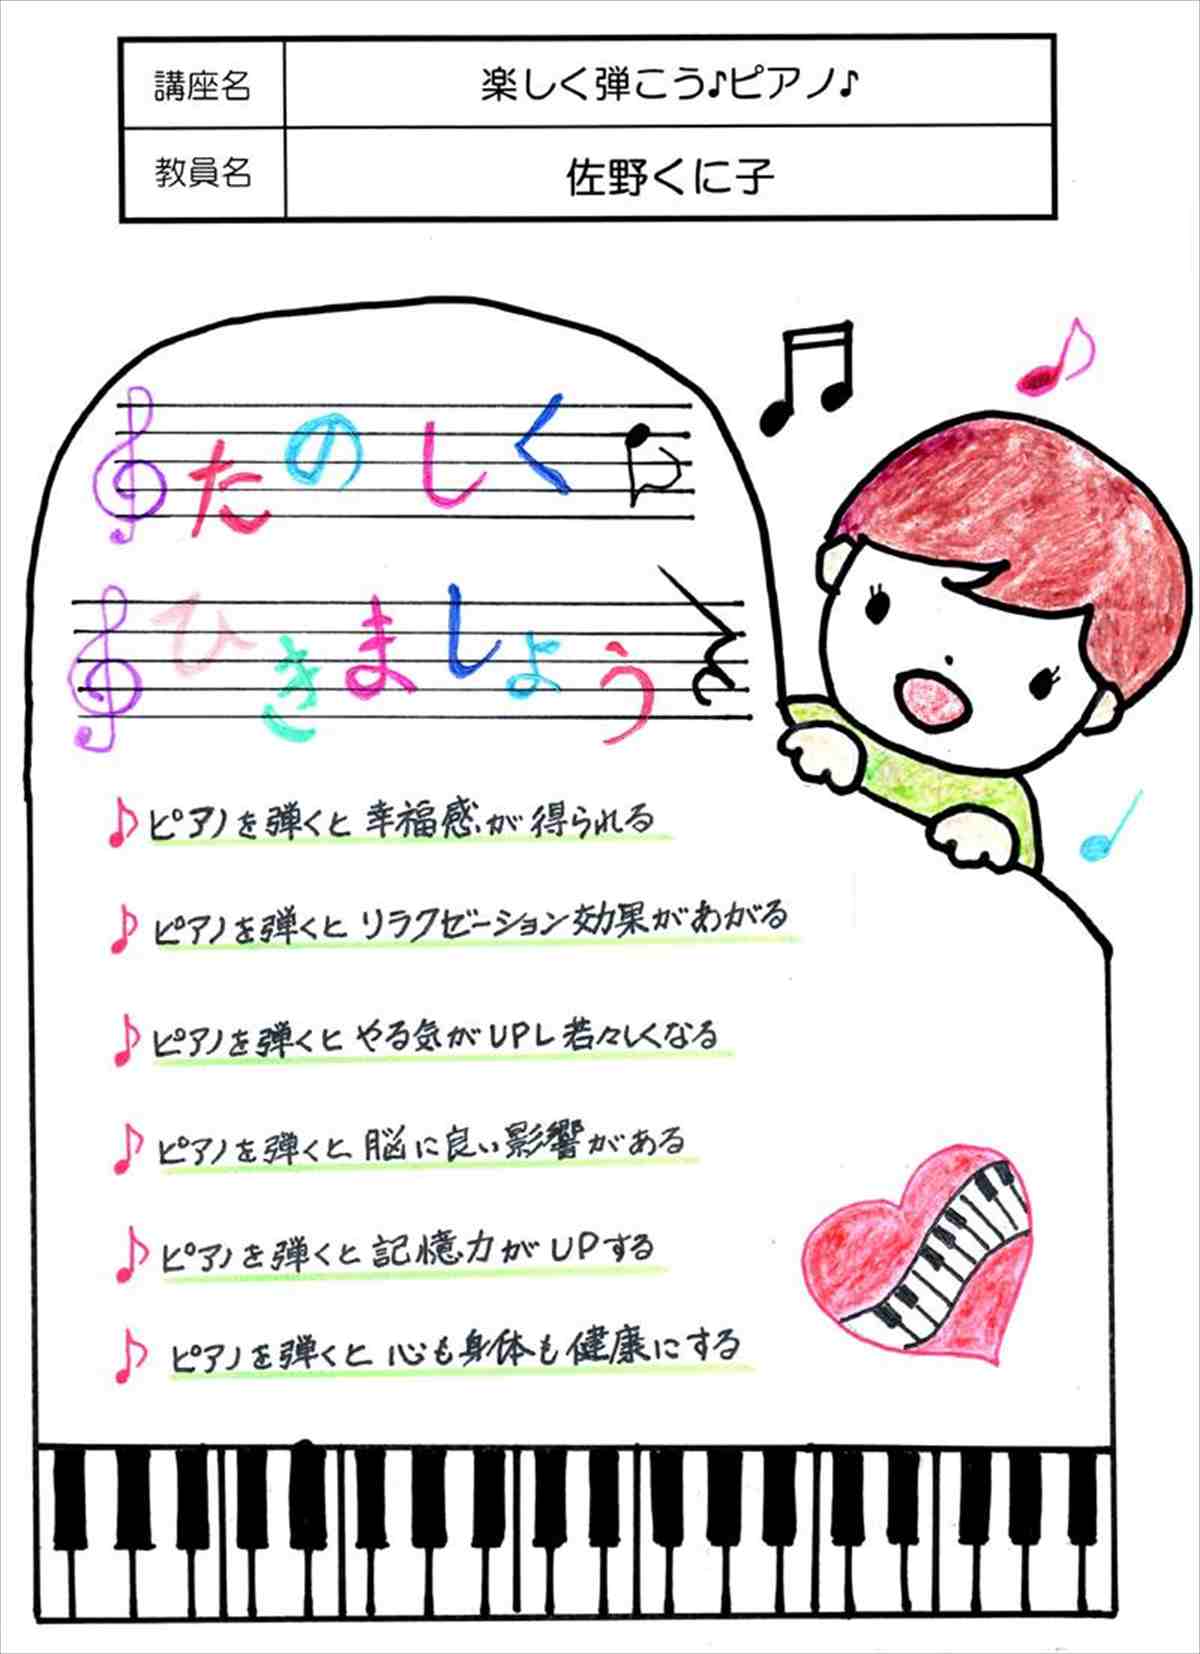 講座名
楽しく弾こう♪ピアノ♪
教員名
佐野くに子
たのしく
ひきましょう
ピアノを弾くと幸福感が得られる
ピアノを弾くとリラクゼーション効果があがる
ピアノを弾くとやる気がUPし若々しくなる
ピアノを弾くと脳に良い影響がある
ピアノを弾くと記憶力がUPする
ピアノを弾くと心も身体も健康にする